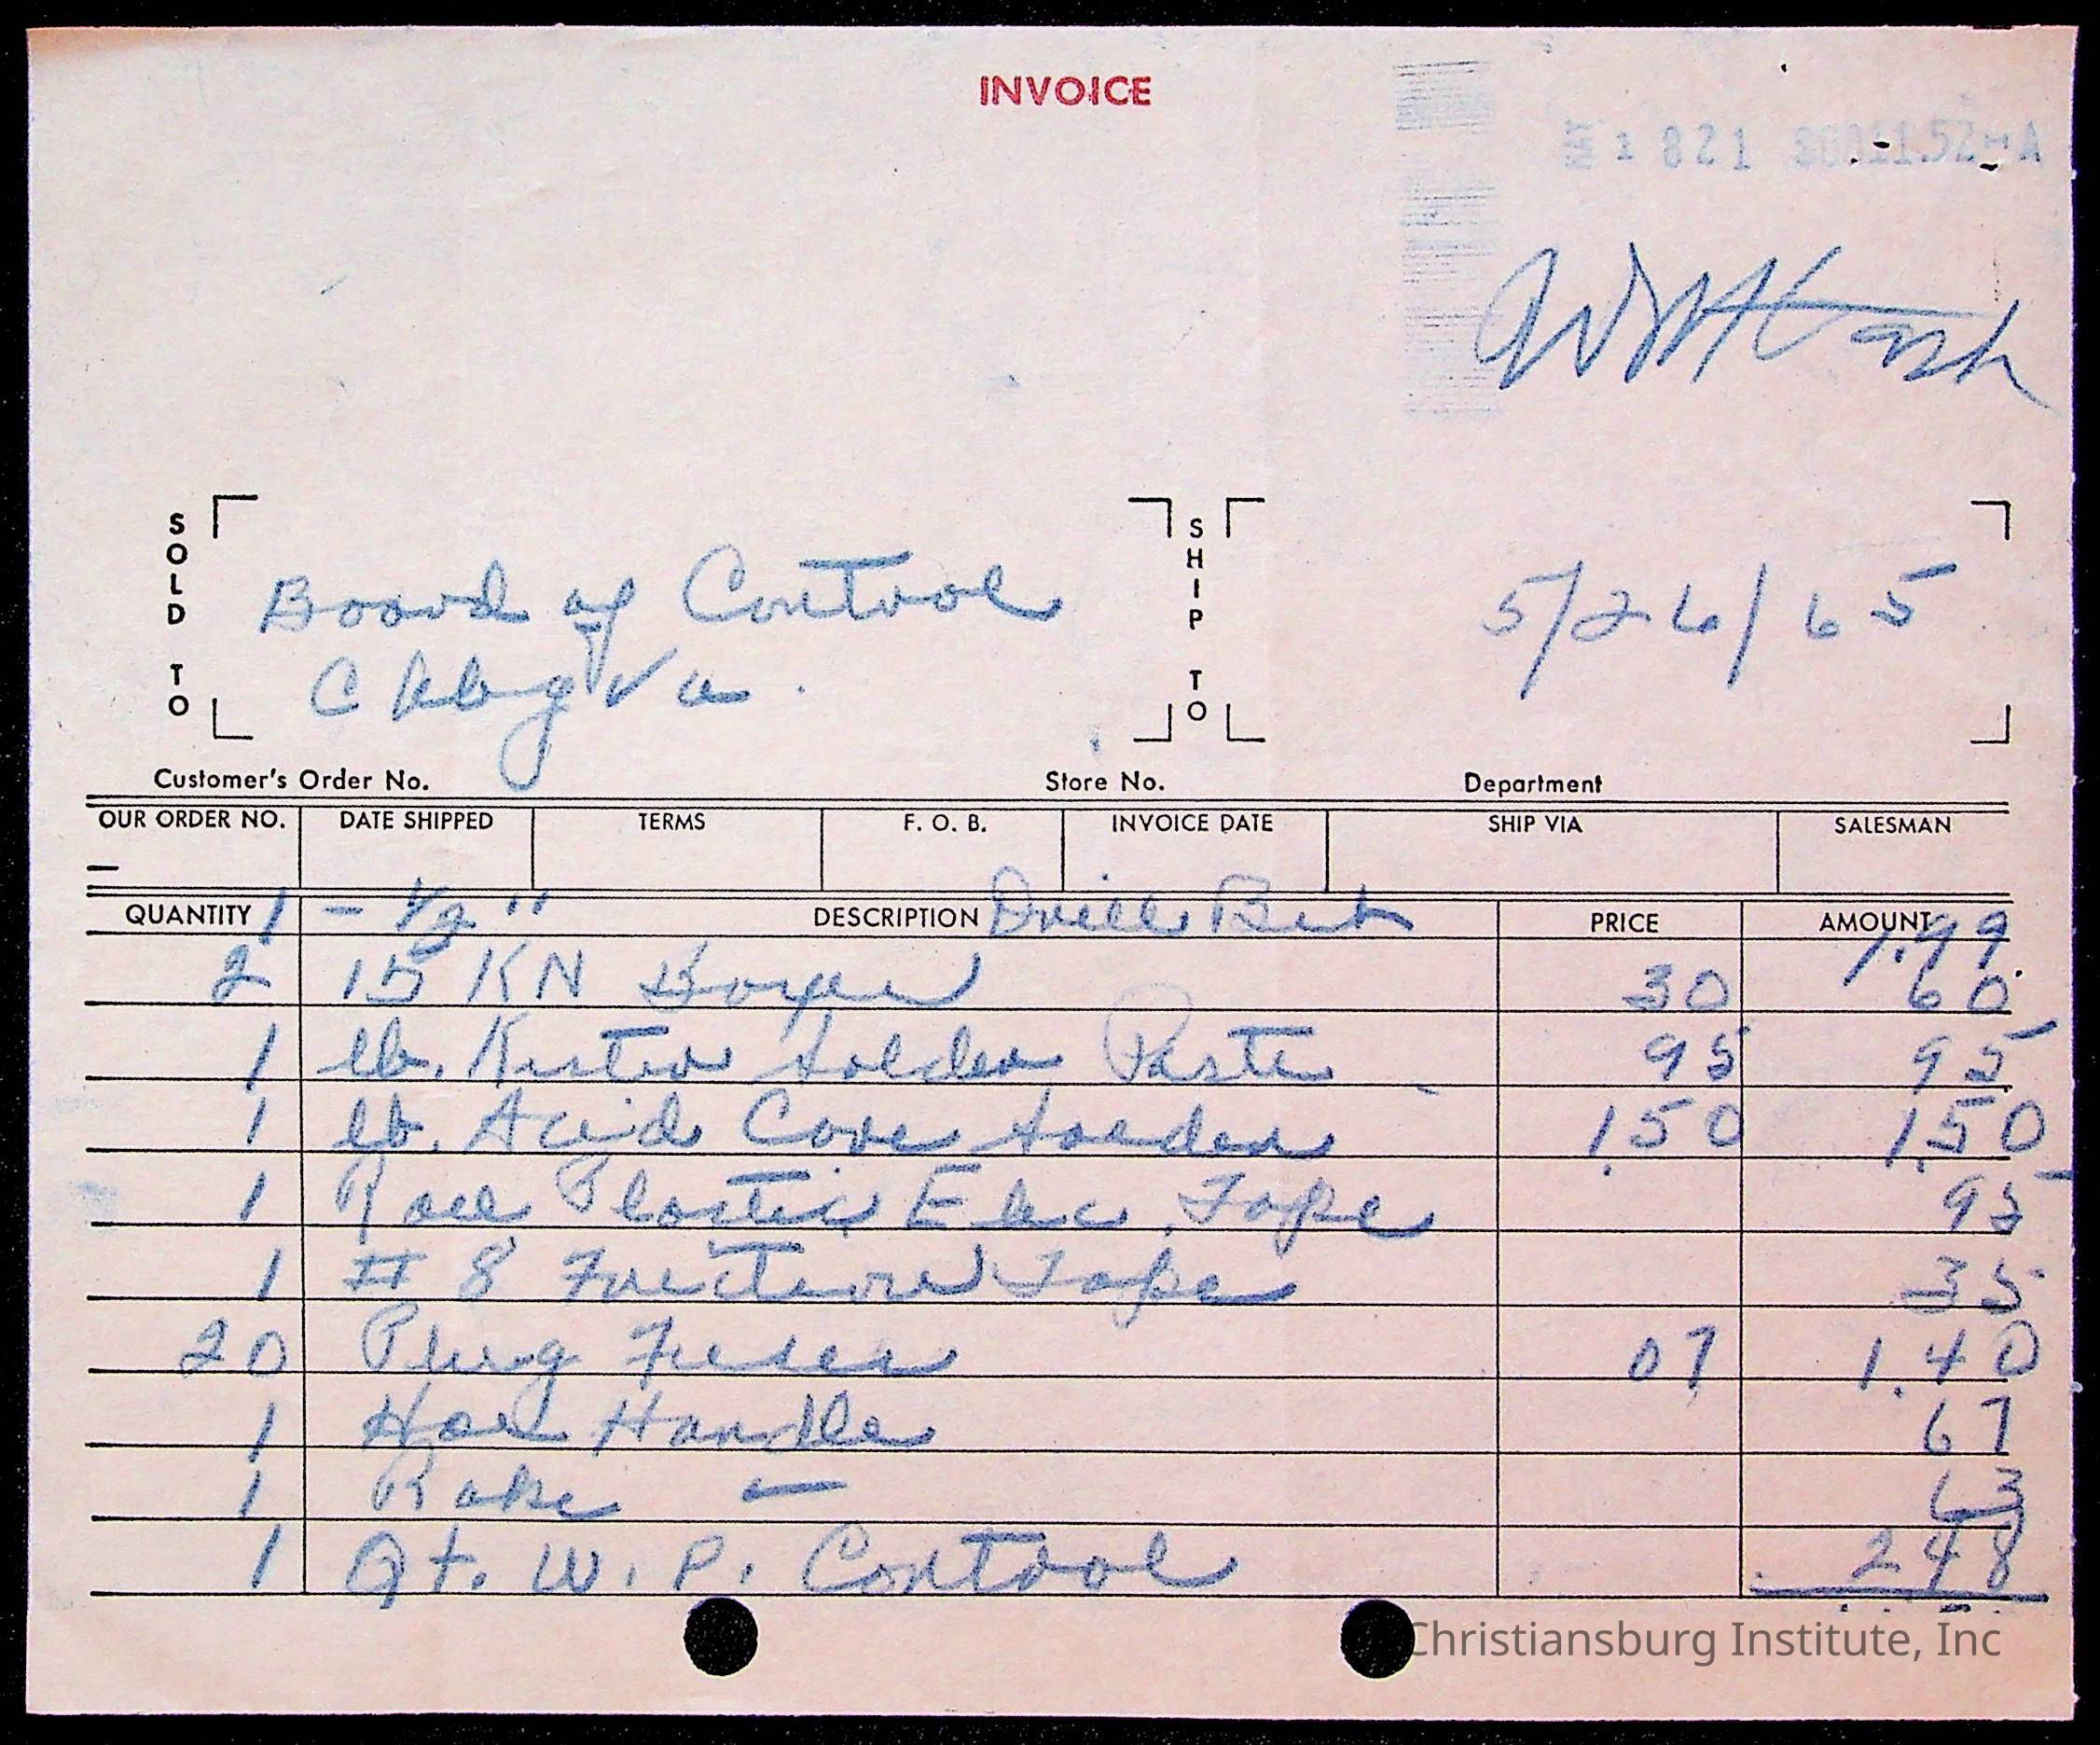 INVOICE
821 $0011.52 A
SOLD TO
Board of Control
Cbbg Va.
SHIP TO
5/26/65
Customer's Order No. Store No. Department
OUR ORDER NO. DATE SHIPPED TERMS F. O. B. INVOICE DATE SHIP VIA SALESMAN
QUANTITY DESCRIPTION PRICE AMOUNT
1 - 1/2" Drill Bit 1.99
2 15 KN 30 60
1 lb. Kester Solder Paste 95 95
1 lb. Acid Core Solder 1.50 1.50
1 Roll Plastic Elec. Tape 95
1 # 8 Friction Tape 35
20 Plug Fuses 07 1.40
1 Hoe Handle 67
1 Rake - 63
1 Qt. W. P. Control 248
Christiansburg Institute, Inc